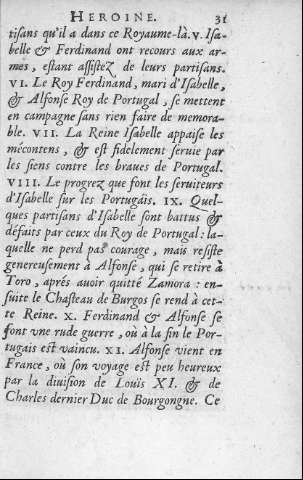 HEROINE. 31
tisans qu'il a dans ce Royaume-là. V. Isa-
belle & Ferdinand ont recours aux ar-
mes, estant assistez de leurs partisans.
VI. Le Roy Ferdinand, mari d'Isabelle,
& Alfonse Roy de Portugal, se mettent
en campagne sans rien faire de memora-
ble. VII. La Reine Isabelle appaise les
mécontens, & est fidelement seruie par
les siens contre les braues de Portugal.
VIII. Le progrez que font les seruiteurs
d'Isabelle sur les Portugais. IX. Quel-
ques partisans d'Isabelle sont battus &
défaits par ceux du Roy de Portugal: la-
quelle ne perd pas courage, mais resiste
genereusement à Alfonse, qui se retire à
Toro, aprés auoir quitté Zamora: en-
suite le Chasteau de Burgos se rend à cet-
te Reine. X. Ferdinand & Alfonse se
font vne rude guerre, où à la fin le Por-
tugais est vaincu. XI. Alfonse vient en
France, où son voyage est peu heureux
par la diuision de Louis XI. & de
Charles dernier Duc de Bourgongne. Ce